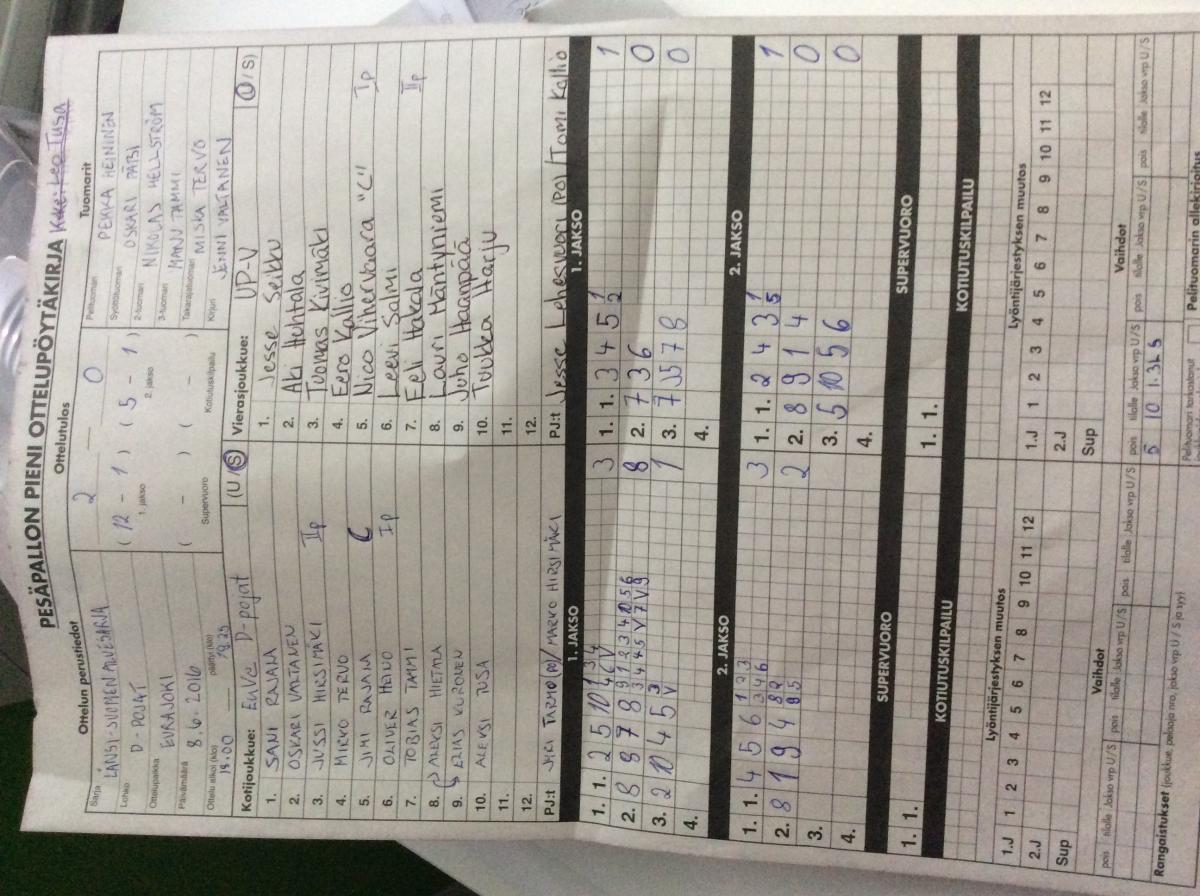 PESÄPALLON PIENI OTTELUPÖYTÄKIRJA
Ottelun perustiedot
Sarja LÄNSI-SUOMEN ALUESARJA
Lohko D-POJAT
Ottelupaikka EURAJOKI
Päivämäärä 8.6.2016
Ottelu alkoi (klo) 18.00 päättyi (klo) 19.25
Ottelutulos
2 — 0
( 12 - 1 ) ( 5 - 1 )
1. jakso 2. jakso
( - ) ( - )
Supervuoro Kotiutuskilpailu
Tuomarit
Pelituomari PEKKA HEININEN
Syöttötuomari OSKARI
2-tuomari NIKOLAS HELLSTRÖM
3-tuomari MANU TAMMI
Takarajatuomari MISKA TERVO
Kirjuri JENNI VALTANEN
Kotijoukkue: EuVe D-pojat (U/S)
1. SANI RAJALA
2. OSKARI VALTANEN
3. JUSSI HIRSIMÄKI IIp
4. MIRKO TERVO
5. JIMI RAJALA C
6. OLIVER HEINO Ip
7. TOBIAS TAMMI
8. ALEKSI HIETALA
9. ELIAS KURONEN
10. ALEKSI TUSA
11.
12.
PJ:t JYRI TARVO (PJ) / MARKO HIRSIMÄKI
Vierasjoukkue: UP-V (U/S)
1. Jesse Seikku
2. Aki Huhtala
3. Tuomas Kivimäki
4. Eero Kallio
5. Nico Vihervaara "C" Ip
6. Leevi Salmi
7. Eeli Hakala IIp
8. Lauri Mäntyniemi
9. Juho Haanpää
10. Tuukka Harju
11.
12.
PJ:t Jesse Lehesvuori (PJ) / Tomi Kallio
1. JAKSO 1. JAKSO
1. 1. 2 5 10 3
2. 8 8 7 8 8
3. 2 10 4 5 1
4.
1. 1. 3 4 5 1
2. 7 3 6 0
3. 7 5 7 8 0
4.
2. JAKSO 2. JAKSO
1. 1. 4 5 6 3
2. 8 1 9 4 2
3.
4.
1. 1. 2 4 3 1
2. 8 9 1 4 0
3. 5 10 5 6 0
4.
SUPERVUORO SUPERVUORO
1. 1. 1. 1.
KOTIUTUSKILPAILU KOTIUTUSKILPAILU
Lyöntijärjestyksen muutos
1.J 1 2 3 4 5 6 7 8 9 10 11 12
2.J
Sup
Lyöntijärjestyksen muutos
1.J 1 2 3 4 5 6 7 8 9 10 11 12
2.J
Sup
Vaihdot
pois tilalle Jakso vrp U/S pois tilalle Jakso vrp U/S pois tilalle Jakso vrp U/S
Vaihdot
pois tilalle Jakso vrp U/S pois tilalle Jakso vrp U/S pois tilalle Jakso vrp U/S
5 10 1. 3L S
Rangaistukset (joukkue, pelaaja nro, jakso vrp U / S ja syy)
Pelituomarin allekirjoitus